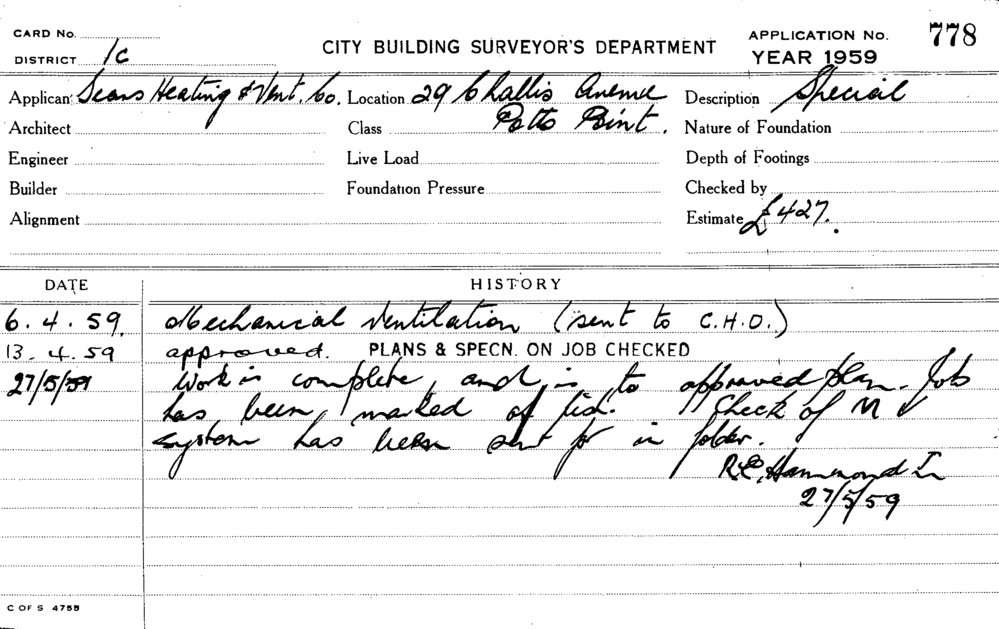 CARD No.
DISTRICT 1C
CITY BUILDING SURVEYOR'S DEPARTMENT
APPLICATION No. 778
YEAR 1959
Applicant Sears Heating & Vent. Co. Location 29 Challis Avenue Description Special
Architect Class Potts Point. Nature of Foundation
Engineer Live Load Depth of Footings
Builder Foundation Pressure Checked by
Alignment Estimate £427.
DATE HISTORY
6.4.59. Mechanical Ventilation (sent to C.H.O.)
13.4.59 approved. PLANS & SPECN. ON JOB CHECKED
27/5/59 Work is complete, and is to approved plan. Job
has been marked of list. Check of M V
system has been sent for in folder.
R.C. Hammond
27/5/59
C OF S 4755